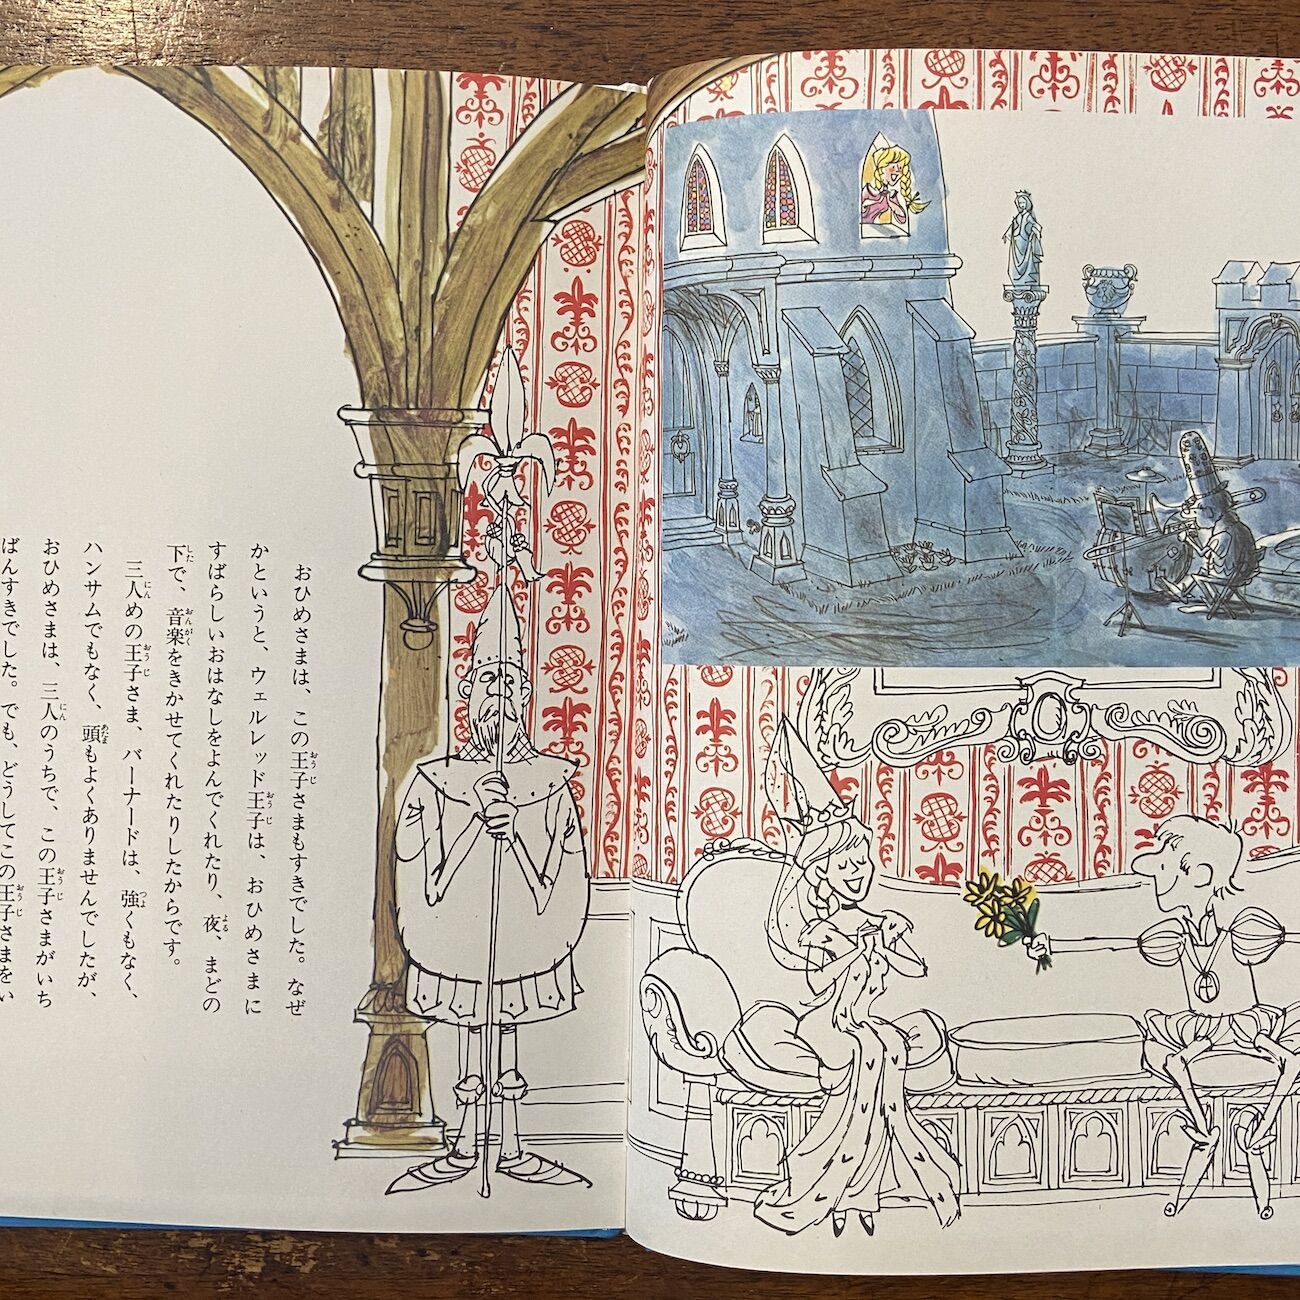 おひめさまは、この王子さまもすきでした。なぜ
かというと、ウェルレッド王子は、おひめさまに
すばらしいおはなしをよんでくれたり、夜、まどの
下で、音楽をきかせてくれたりしたからです。
三人めの王子さま、バーナードは、強くもなく、
ハンサムでもなく、頭もよくありませんでしたが、
おひめさまは、三人のうちで、この王子さまがいち
ばんすきでした。でも、どうしてこの王子さまをい